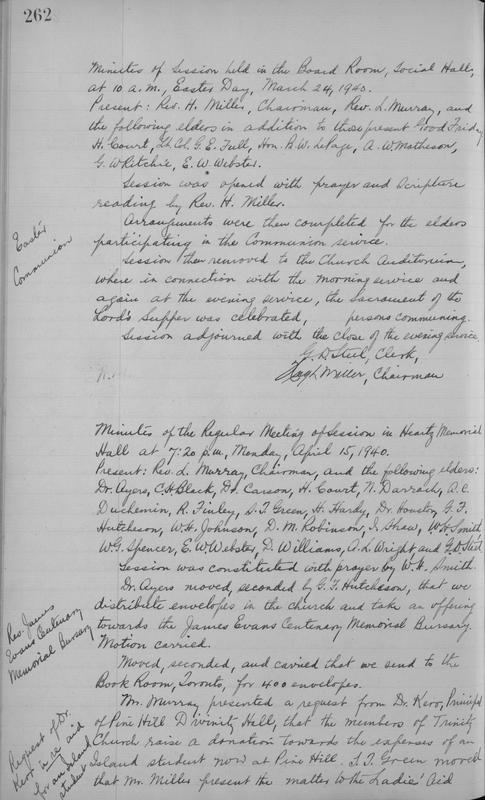 262
Minutes of Session held in the Board Room, Social Hall,
at 10 a.m., Easter Day, March 24, 1940.
Present: Rev. H. Miller, Chairman, Rev. L. Murray, and
the following elders in addition to those present Good Friday
H. Court, Lt. Col. G. E. Full, Hon. B. W. LePage, A. W. Matheson,
G. W. Ritchie, E. W. Webster.
Session was opened with prayer and Scripture
reading by Rev. H. Miller.
Arrangements were then completed for the elders
participating in the Communion service.
Easter
Communion
Session then removed to the Church Auditorium,
where in connection with the morning service and
again at the evening service, the Sacrament of the
Lord's Supper was celebrated, persons communing.
Session adjourned with the close of the evening service.
G. D. Steel, Clerk,
Hugh Miller, Chairman
Minutes of the Regular Meeting of Session in Heartz Memorial
Hall at 7:20 p.m., Monday, April 15, 1940.
Present: Rev. L. Murray, Chairman, and the following elders:
Dr. Ayers, C. H. Black, D. L. Carson, H. Court, N. Darrach, A. C.
Duchemin, R. Finley, S. T. Green, H. Hardy, Dr. Houston, G. F.
Hutcheson, W. H. Johnson, D. M. Robinson, I. Shaw, W. H. Smith
W. G. Spencer, E. W. Webster, D. Williams, A. L. Wright and G. D. Steel
Session was constituted with prayer by W. H. Smith.
Dr. Ayers moved, seconded by G. F. Hutcheson, that we
distribute envelopes in the church and take an offering
towards the James Evans Centenary Memorial Bursary.
Motion carried.
Rev. James
Evans Centenary
Memorial Bursary
Moved, seconded, and carried that we send to the
Book Room, Toronto, for 400 envelopes.
Mr. Murray presented a request from Dr. Kerr, Principal
of Pine Hill Divinity Hall, that the members of Trinity
Church raise a donation towards the expenses of an
Island student now at Pine Hill. S. T. Green moved
that Mr. Miller present the matter to the Ladies' Aid
Request of Dr.
Kerr in re aid
for an Island
student